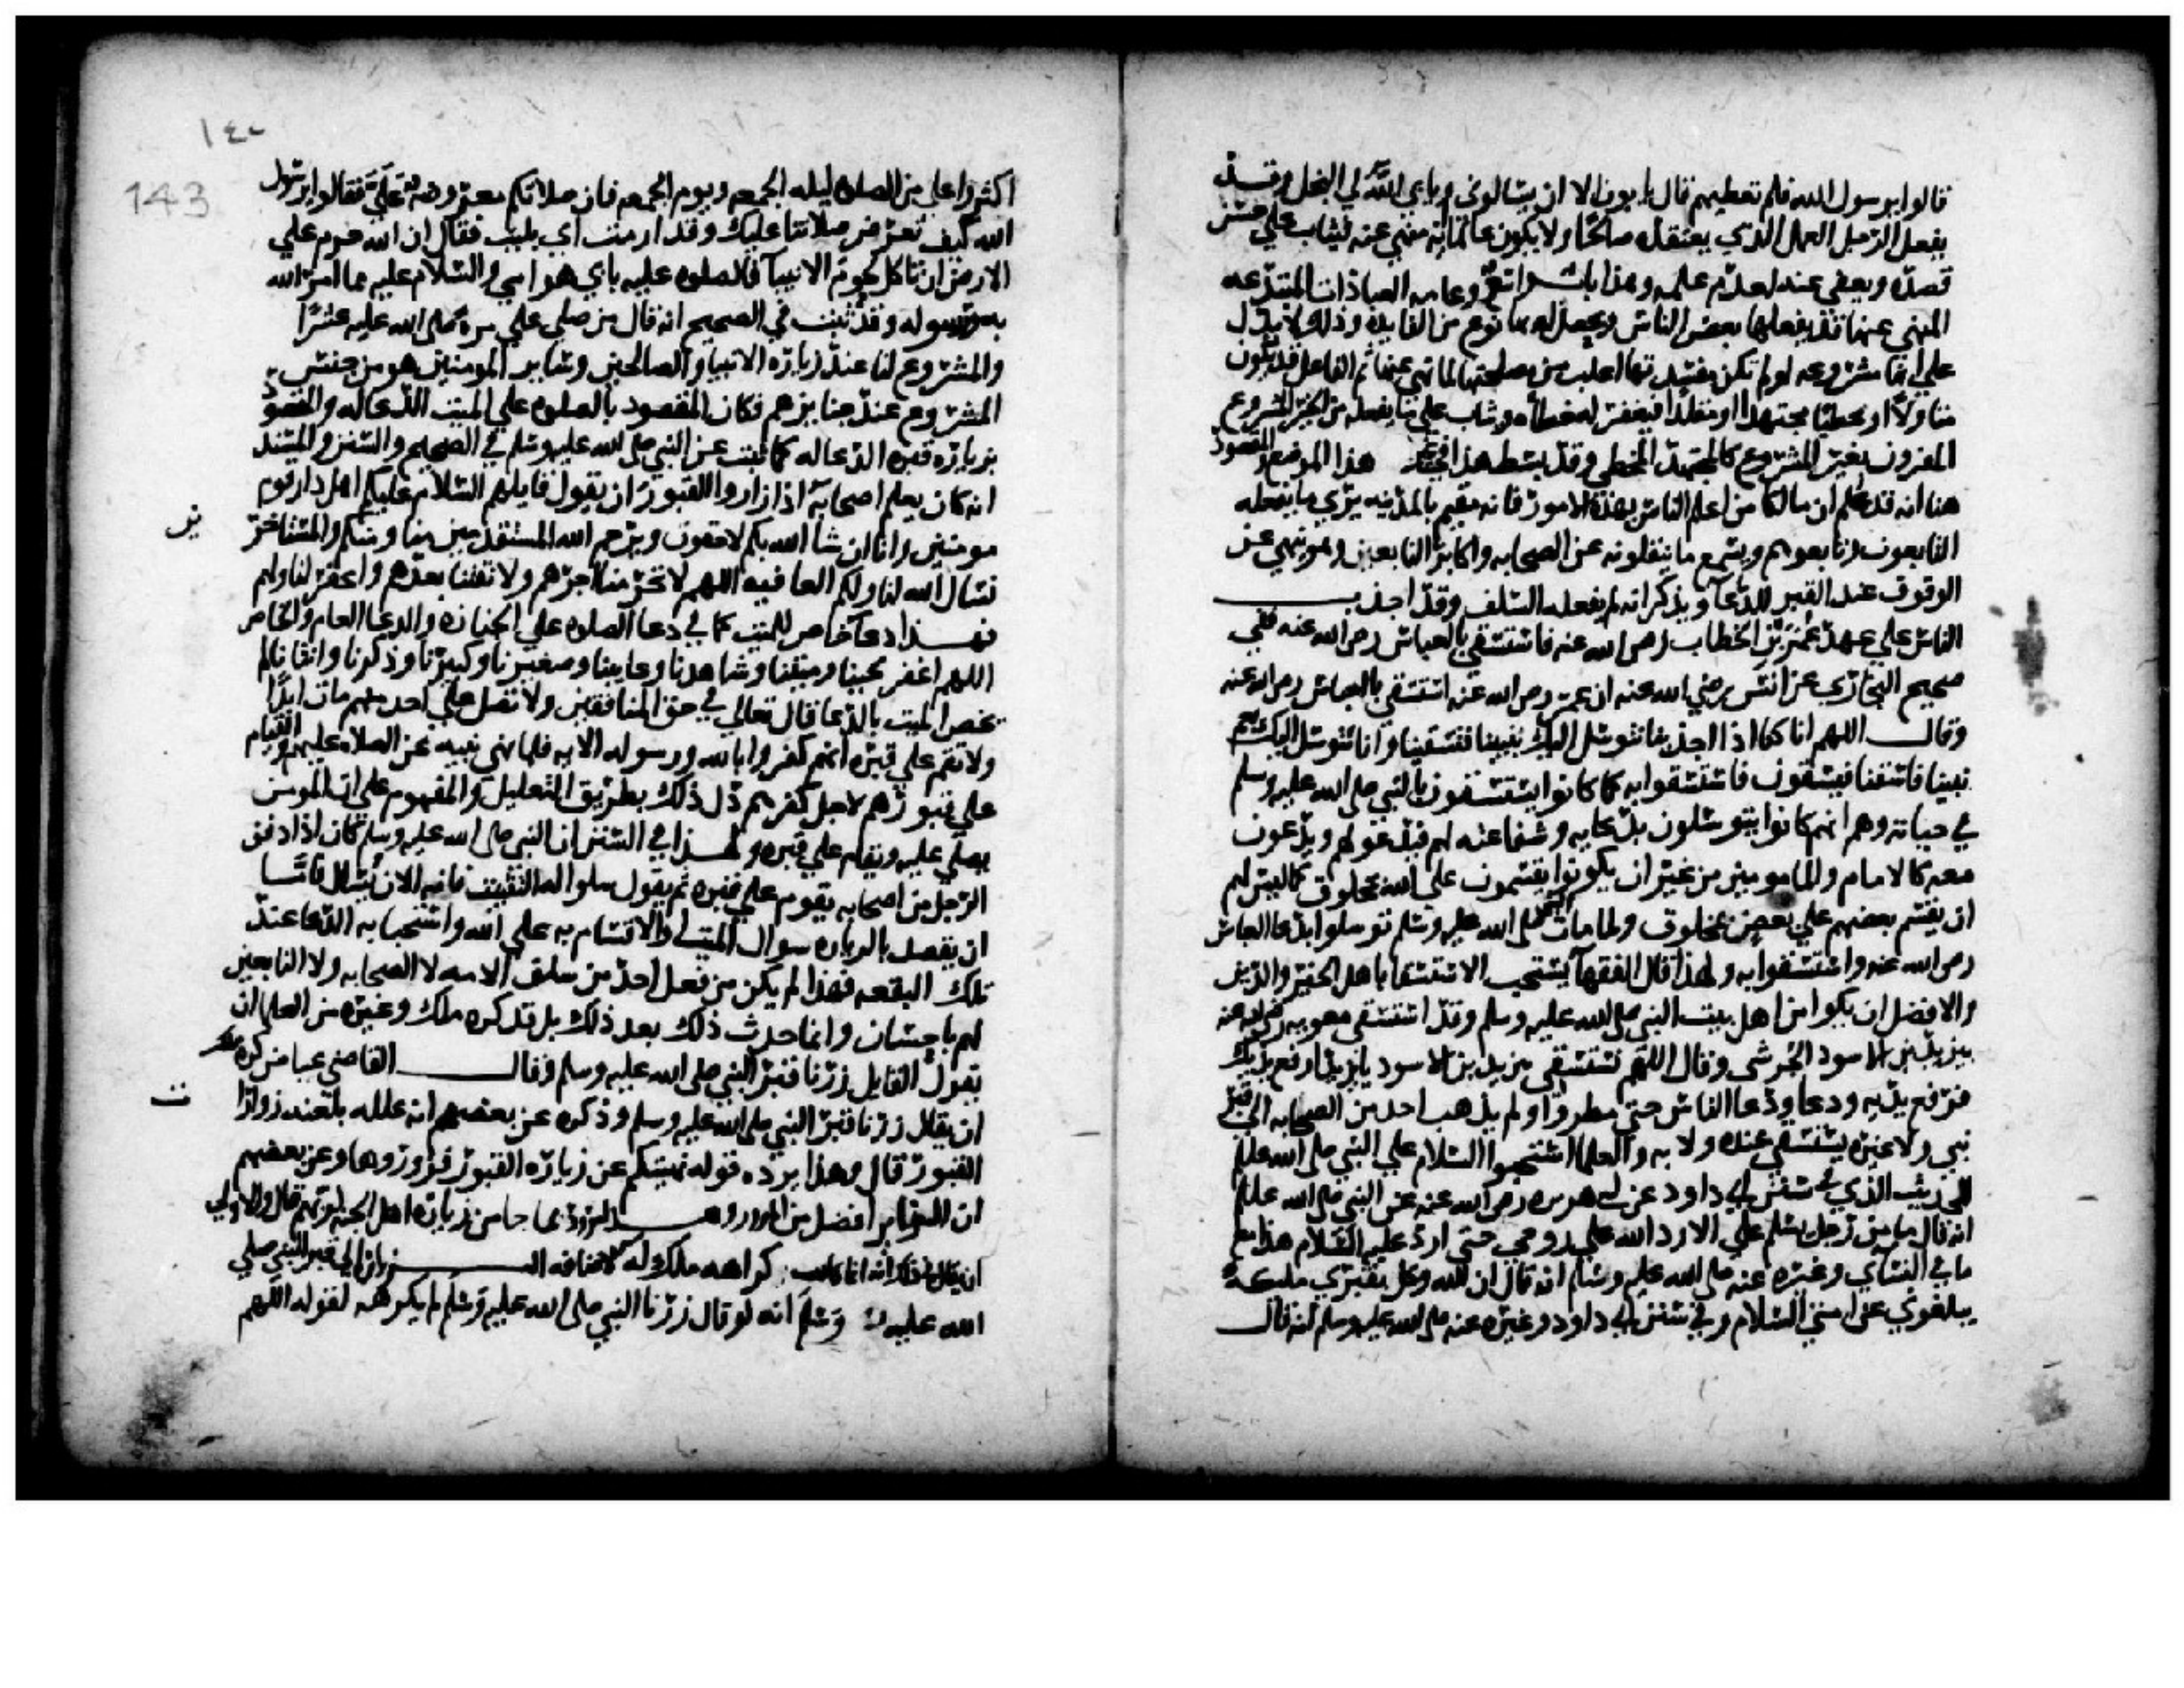 قالوا يرسول الله فلم تعطيهم قال يابون الا ان يسالوني ويابي الله لي البخل وقد
يفعل الرجل العمل الذي يعتقده صالحا ولا يكون عالما انه منهي عنه فيثاب علي حسن
قصده ويعفي عنه لعدم علمه وهذا باب واسع وعامه العبادات المبتدعه
المنهي عنها قد يفعلها بعض الناس ويحصل له بها نوع من الفايده وذلك لا يدل
علي انها مشروعه لو لم تكن مفسدتها اغلب من مصلحتها لما نهي عنها ثم الفاعل قد يكون
متاولا او مخطيا مجتهدا او مقلدا فيغفر له خطاه ويثاب علي ما يفعله من الخير المشروع
المقرون بغير المشروع كالمجتهد المخطي وقد بسط هذا في غير هذا الموضع والمقصود
هنا انه قد علم ان مالكا من اعلم الناس بهذه الامور فانه مقيم بالمدينه يري ما يفعله
التابعون وتابعوهم ويسمع ما ينقلونه عن الصحابه واكابر التابعين وهو ينهي عن
الوقوف عند القبر للدعا ويذكر انه لم يفعله السلف وقد اجدب
الناس علي عهد عمر بن الخطاب رضي الله عنه فاستسقي بالعباس رضي الله عنه ففي
صحيح البخاري عن انس رضي الله عنه ان عمر رضي الله عنه استسقي بالعباس رضي الله عنه
وقال اللهم انا كنا اذا اجدبنا نتوسل اليك بنبينا فتسقينا وانا نتوسل اليك بعم
نبينا فاسقنا فيسقون فاستسقوا به كما كانوا يستسقون بالنبي صلي الله عليه وسلم
في حياته وهم انهم كانوا يتوسلون بدعايه وشفاعته لهم فيدعو لهم ويدعون
معه كالامام والمامومين من غير ان يكونوا يقسمون علي الله بمخلوق كما ليس لهم
ان يقسم بعضهم علي بعض بمخلوق ولما مات النبي صلي الله عليه وسلم توسلوا بدعا العباس
رضي الله عنه واستسقوا به ولهذا قال الفقها يستحب الاستسقا باهل الخير والدين
والافضل ان يكونوا من اهل بيت النبي صلي الله عليه وسلم وقد استسقي معويه رضي الله عنه
بيزيد بن الاسود الجرشي وقال اللهم نستسقي بيزيد بن الاسود يا يزيد ارفع يديك
فرفع يديه ودعا ودعا الناس حتي مطروا ولم يذهب احد من الصحابه الي قبر
نبي ولا غيره يستسقي عنده ولا به والعلما استحبوا السلام علي النبي صلي الله عليه
للحديث الذي في سنن ابي داود عن ابي هريره رضي الله عنه عن النبي صلي الله عليه
انه قال ما من رجل يسلم علي الا رد الله علي روحي حتي ارد عليه السلام هذا مع
ما في النساي وغيره عنه صلي الله عليه وسلم انه قال ان الله وكل بقبري مليكه
يبلغوني عن امتي السلام وفي سنن ابي داود وغيره عنه صلي الله عليه وسلم انه قال
١٤٠
143
اكثروا علي من الصلوه ليله الجمعه ويوم الجمعه فان صلاتكم معروضه علي فقالوا يرسول
الله كيف تعرض صلاتنا عليك وقد ارمت اي بليت فقال ان الله حرم علي
الارض ان تاكل لحوم الانبيا فالصلوه عليه بابي هو امي والسلام عليه مما امر الله
به ورسوله وقد ثبت في الصحيح انه قال من صلي علي مره صلي الله عليه عشرا
والمشروع لنا عند زياره الانبيا والصالحين وساير المومنين هو من جنس
المشروع عند جنايزهم فكان المقصود بالصلوه علي الميت الدعا له والمقصود
بزيارة قبره الدعا له كما ثبت عن النبي صلي الله عليه وسلم في الصحيح والسنن والمسند
انه كان يعلم اصحابه اذا زاروا القبور ان يقول قايلهم السلام عليكم اهل دار قوم
مومنين وانا ان شا الله بكم لاحقون ويرحم الله المستقدمين منا ومنكم والمستاخر
ين
نسال الله لنا ولكم العافيه اللهم لا تحرمنا اجرهم ولا تفتنا بعدهم واغفر لنا ولهم
فهذا دعا خاص للميت كما في دعا الصلوه علي الجنازه والدعا العام والخاص
اللهم اغفر لحينا وميتنا وشاهدنا وغايبنا وصغيرنا وكبيرنا وذكرنا وانثانا ثم
يخص الميت بالدعا قال تعالي في حق المنافقين ولا تصل علي احد منهم مات ابدا
ولا تقم علي قبره انهم كفروا بالله ورسوله الايه فلما نهي نبيه عن الصلاه عليهم والقيام
علي قبورهم لاجل كفرهم دل ذلك بطريق التعليل والمفهوم علي ان المومن
يصلي عليه ويقام علي قبره ولهذا في السنن ان النبي صلي الله عليه وسلم كان اذا دفن
الرجل من اصحابه يقوم علي قبره ثم يقول سلوا له التثبيت فانه الان يسال فاما
ان يقصد بالزياره سوال الميت والاقسام به علي الله واستجابه الدعا عند
تلك البقعه فهذا لم يكن من فعل احد من سلف الامه لا الصحابه ولا التابعين
لهم باحسان وانما حدث ذلك بعد ذلك بل قد كره ملك وغيره من العلما ان
يقول القايل زرنا قبر النبي صلي الله عليه وسلم وقال القاضي عياض كره
ان يقال زرنا قبر النبي صلي الله عليه وسلم وذكره عن بعضهم انه علله بلعنه زوارا
ت
القبور قال وهذا يرده قوله نهيتكم عن زياره القبور فزوروها وعن بعضهم
ان الزاير افضل من المزور وهذا مردود بما جا من زياره اهل الجنه لربهم قال والاولي
ان يقال انه انما كراهه ملك له لاضافه الزياره الي قبر النبي صلي
الله عليه وسلم انه لو قال زرنا النبي صلي الله عليه وسلم لم يكرهه لقوله اللهم